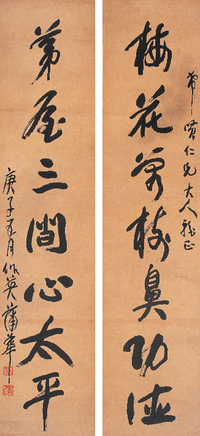 希賢仁兄大人雅正
梅花萬樹鼻功德
茅屋三間心太平
庚子五月作英蒲華